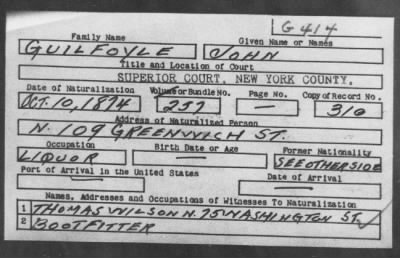 G414
Family Name Given Name or Names
GUILFOYLE JOHN
Title and Location of Court
SUPERIOR COURT, NEW YORK COUNTY.
Date of Naturalization Volume or Bundle No. Page No. Copy of Record No.
OCT. 10, 1874 257 — 310
Address of Naturalized Person
N. 109 GREENWICH ST.
Occupation Birth Date or Age Former Nationality
LIQUOR — SEE OTHER SIDE
Port of Arrival in the United States Date of Arrival
— —
Names, Addresses and Occupations of Witnesses To Naturalization
1 THOMAS WILSON N. 75 WASHINGTON ST.
2 BOOTFITTER